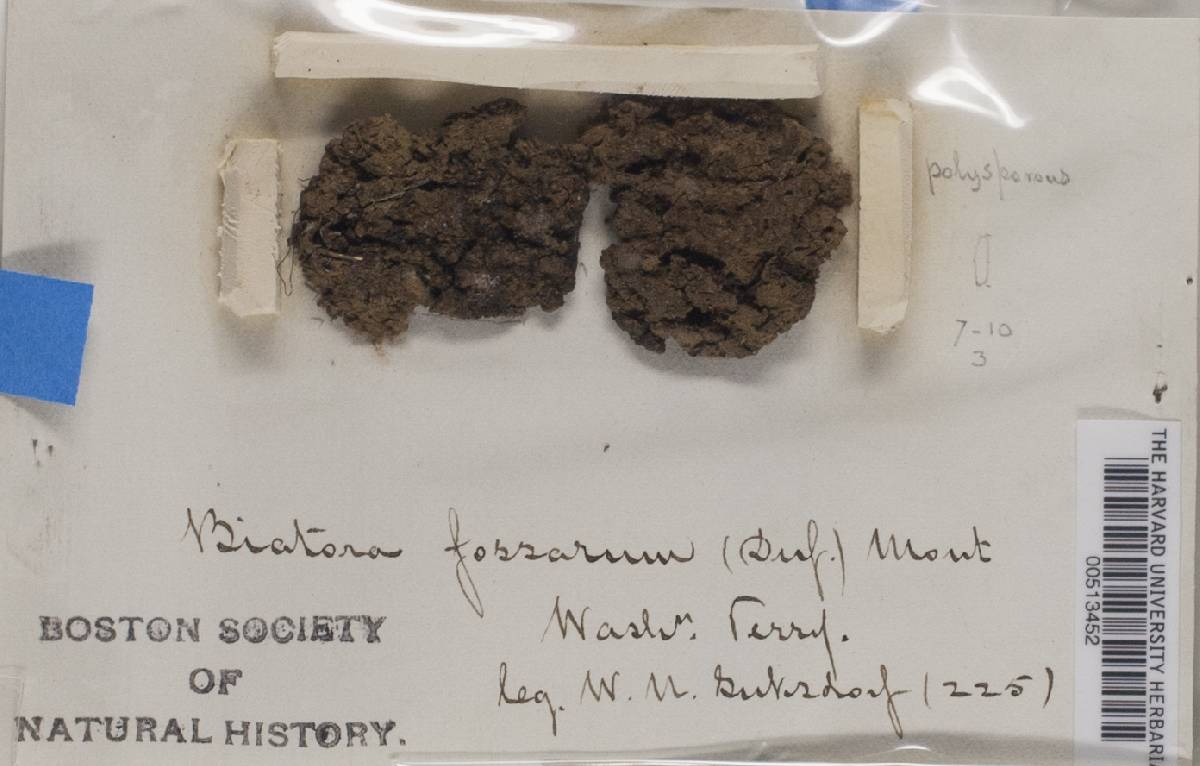 polysporous
7-10
3
Biatora fossarum (Duf.) Mont
Washn. Terry.
leg. W. N. Suksdorf (225)
BOSTON SOCIETY
OF
NATURAL HISTORY.
THE HARVARD UNIVERSITY HERBARIA
00513452